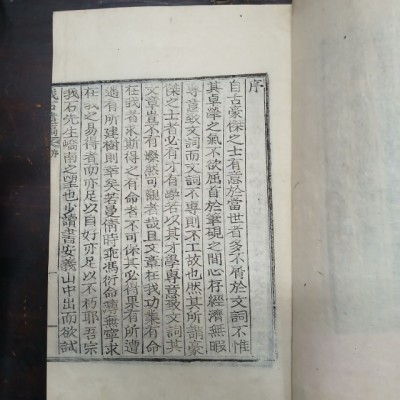 序
自古豪傑之士有意於當世者多不屑於文詞不惟
其卓犖之氣不欲屈首於筆硯之間心存經濟無暇
專意致文詞而文詞不專則不工故也然其所謂豪
傑之士者必有才有學若以其才學專意發文詞其
文章豈不有燦然可觀者哉且文章在我功業有命
在我者求斯得之有命者不可保其必得果有所遭
遇有所建樹則幸矣若曼倩時乖馮衍命薄無寧求
在我之易得者而亦足以自好亦足以不朽耶吾宗
我石先生嶠南之望也少讀書安義山中出而欲試
我石